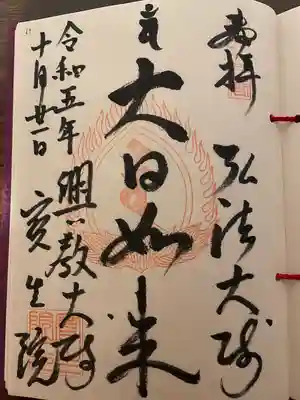 奉拝
弘法大師
大日如来
興教大師
令和五年
十月廿一日
寳生院